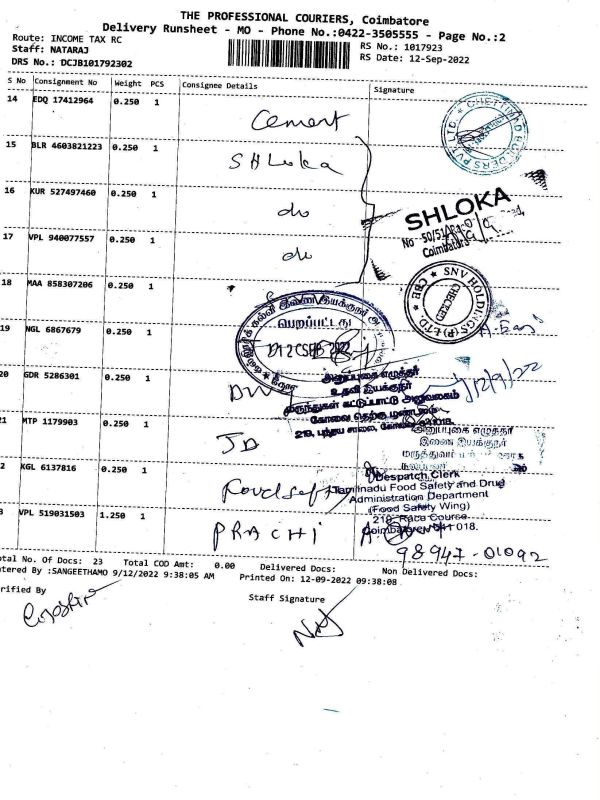 THE PROFESSIONAL COURIERS, Coimbatore
Delivery Runsheet - MO - Phone No.:0422-3505555 - Page No.:2
Route: INCOME TAX RC
RS No.: 1017923
Staff: NATARAJ
RS Date: 12-Sep-2022
DRS No.: DCJB101792302
S No Consignment No Weight PCS Consignee Details Signature
14 EDQ 17412964 0.250 1
Cement
15 BLR 4603821223 0.250 1
SHLoka
16 KUR 527497460 0.250 1
do
SHLOKA
No
Coimbatore
17 VPL 940077557 0.250 1
do
18 MAA 858307206 0.250 1
SNV HOLDINGS(P)LTD. ★ CBE ★
CHECKED
19 NGL 6867679 0.250 1
பெறப்பட்டது
அனுப்புகை எழுத்தர்
உதவி இயக்குநர்
மருந்துகள் கட்டுப்பாட்டு அலுவலகம்
கோவை தெற்கு மண்டலம்
12/9/22
20 GDR 5286301 0.250 1
21 MTP 1179903 0.250 1
JD
அனுப்புகை எழுத்தர்
இணை இயக்குநர்
2 KGL 6137816 0.250 1
Despatch Clerk
Tamilnadu Food Safety and Drug
Administration Department
(Food Safety Wing)
219, Race Course
018.
3 VPL 519031503 1.250 1
PRACHI
98947-01092
otal No. Of Docs: 23 Total COD Amt: 0.00 Delivered Docs: Non Delivered Docs:
ntered By :SANGEETHAMO 9/12/2022 9:38:05 AM Printed On: 12-09-2022 09:38:08
rified By
Staff Signature